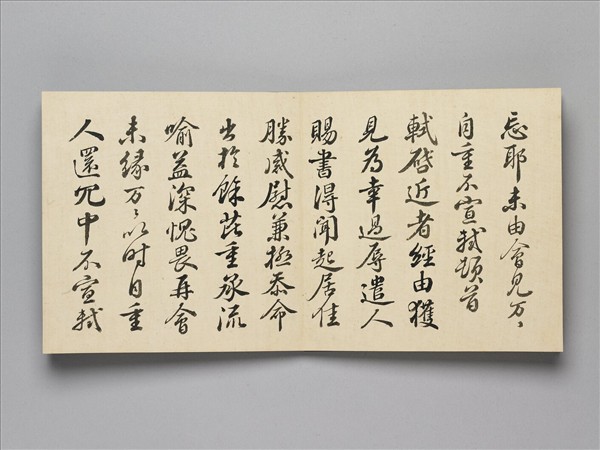 忘耶未由會見万〻
自重不宣軾頓首
軾啓近者經由獲
見為幸過辱遣人
賜書得聞起居佳
勝感慰兼極忝命
出於餘芘重承流
喻益深愧畏再會
未緣万〻以時自重
人還冗中不宣軾